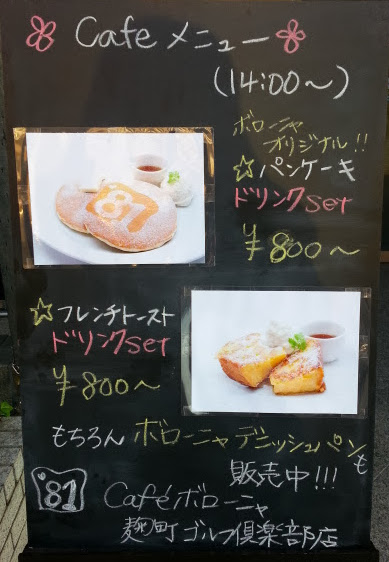 Cafe メニュー
(14:00～)
ボローニャ
オリジナル!!
☆パンケーキ
ドリンクset
¥800～
81
☆フレンチトースト
ドリンクset
¥800～
もちろん ボローニャデニッシュパンも
販売中!!!
81
Caféボローニャ
麹町ゴルフ倶楽部店